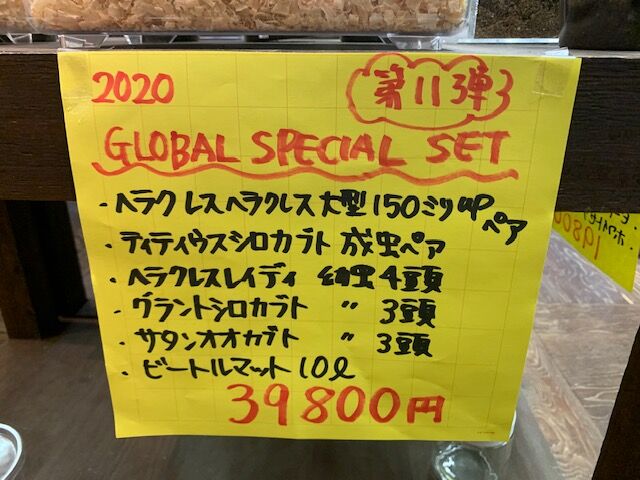 2020
第11弾
GLOBAL SPECIAL SET
・ヘラクレスヘラクレス大型150ミリUPペア
・ティティウスシロカブト 成虫ペア
・ヘラクレスレイディ 幼虫4頭
・グラントシロカブト 〃 3頭
・サタンオオカブト 〃 3頭
・ビートルマット10ℓ
39800円
19800